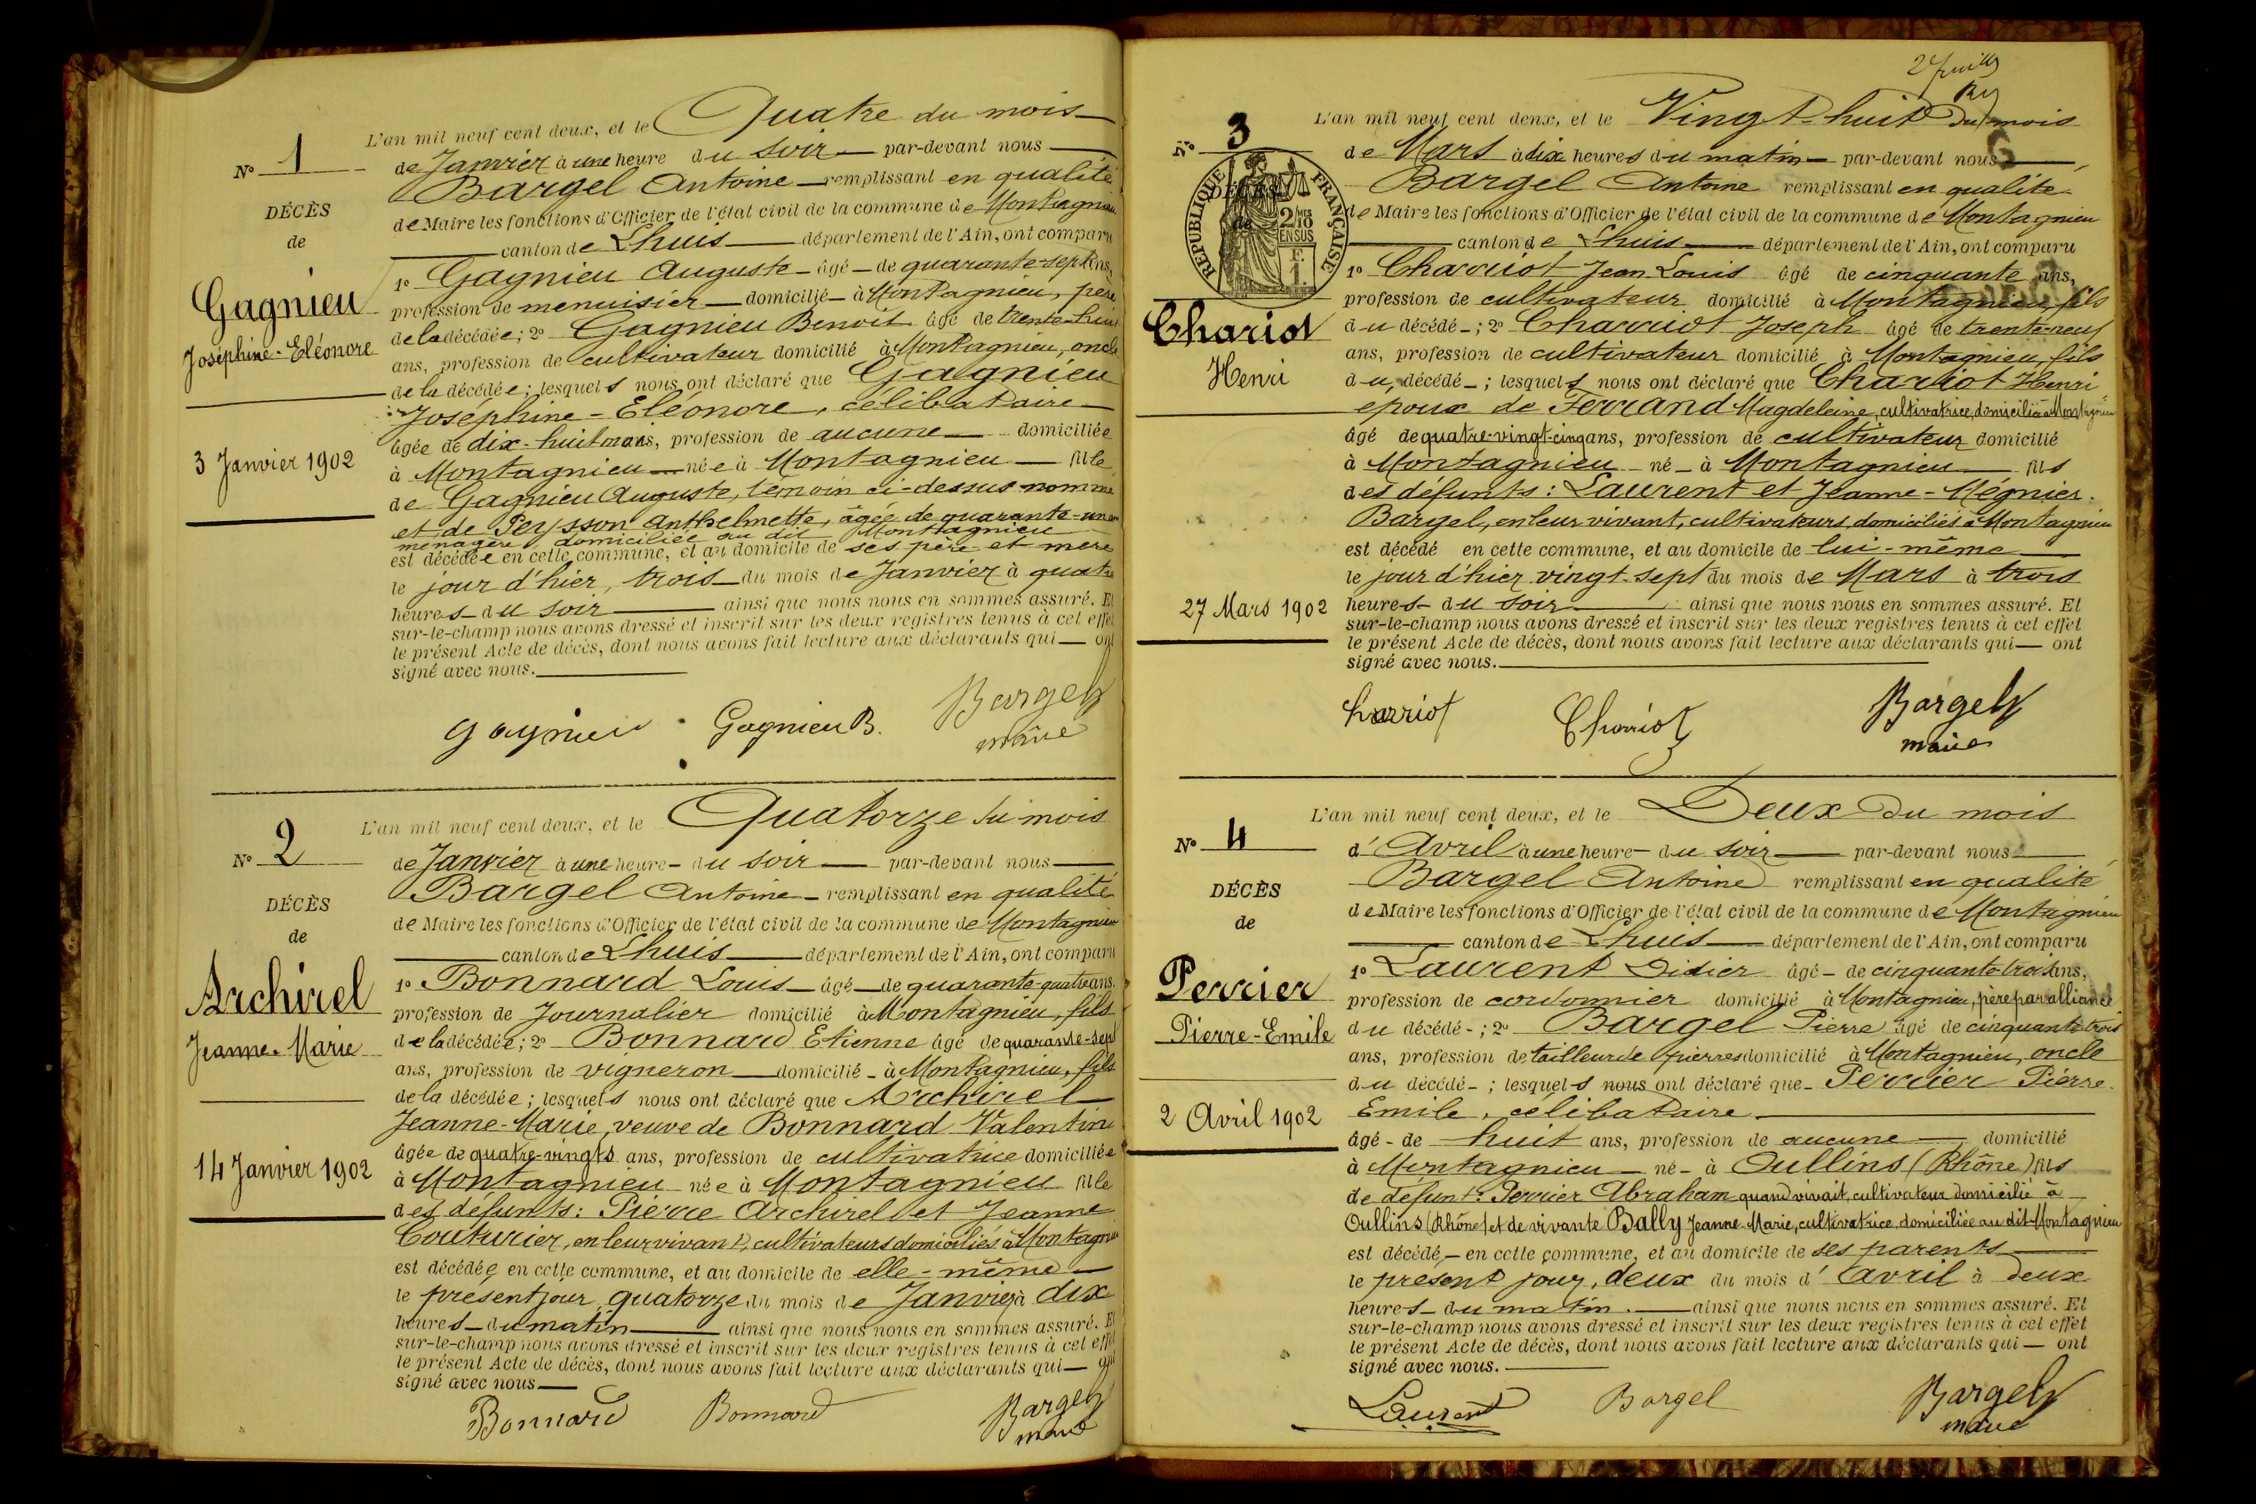 N° 1
DÉCÈS
de
Gagnieu
Joséphine-Eléonore
3 Janvier 1902
L'an mil neuf cent deux, et le Quatre du mois
de Janvier à une heure du soir par-devant nous
Bargel Antoine remplissant en qualité
de Maire les fonctions d'Officier de l'état civil de la commune de Montagnieu
canton de Lhuis département de l'Ain, ont comparu
1° Gagnieu Auguste âgé de quarante-sept ans,
profession de menuisier domicilié à Montagnieu, père
de la décédée; 2° Gagnieu Benoit âgé de trente-huit
ans, profession de cultivateur domicilié à Montagnieu, oncle
de la décédée; lesquels nous ont déclaré que Gagnieu
Joséphine-Eléonore, célibataire
âgée de dix-huit mois ans, profession de aucune domiciliée
à Montagnieu née à Montagnieu fille
de Gagnieu Auguste, témoin ci-dessus nommé
et de Peysson Anthelmette, âgée de quarante-un an
ménagère domiciliée au dit Montagnieu
est décédée en cette commune, et au domicile de ses père et mère
le jour d'hier, trois du mois de Janvier à quatre
heures du soir ainsi que nous nous en sommes assuré. Et
sur-le-champ nous avons dressé et inscrit sur les deux registres tenus à cet effet
le présent Acte de décès, dont nous avons fait lecture aux déclarants qui ont
signé avec nous.
Gagnieu Gagnieu B. Bargel
maire
N° 2
DÉCÈS
de
Archirel
Jeanne-Marie
14 Janvier 1902
L'an mil neuf cent deux, et le Quatorze du mois
de Janvier à une heure du soir par-devant nous
Bargel Antoine remplissant en qualité
de Maire les fonctions d'Officier de l'état civil de la commune de Montagnieu
canton de Lhuis département de l'Ain, ont comparu
1° Bonnard Louis âgé de quarante-quatre ans,
profession de Journalier domicilié à Montagnieu, fils
de la décédée; 2° Bonnard Etienne âgé de quarante-sept
ans, profession de vigneron domicilié à Montagnieu, fils
de la décédée; lesquels nous ont déclaré que Archirel
Jeanne-Marie, veuve de Bonnard Valentin
âgée de quatre-vingts ans, profession de cultivatrice domiciliée
à Montagnieu née à Montagnieu fille
des défunts: Pierre Archirel et Jeanne
Couturier, en leur vivant, cultivateurs domiciliés à Montagnieu
est décédée en cette commune, et au domicile de elle-même
le présent jour, quatorze du mois de Janvier à dix
heures du matin ainsi que nous nous en sommes assuré. Et
sur-le-champ nous avons dressé et inscrit sur les deux registres tenus à cet effet
le présent Acte de décès, dont nous avons fait lecture aux déclarants qui ont
signé avec nous
Bonnard Bonnard Bargel
maire
N° 3
DÉCÈS
de
RÉPUBLIQUE FRANÇAISE
2/10 EN SUS
F. 1.
Chariot
Henri
27 Mars 1902
L'an mil neuf cent deux, et le Vingt-huit du mois
de Mars à dix heures du matin par-devant nous
Bargel Antoine remplissant en qualité
de Maire les fonctions d'Officier de l'état civil de la commune de Montagnieu
canton de Lhuis département de l'Ain, ont comparu
1° Charriot Jean Louis âgé de cinquante ans,
profession de cultivateur domicilié à Montagnieu, fils
du décédé; 2° Charriot Joseph âgé de trente-neuf
ans, profession de cultivateur domicilié à Montagnieu, fils
du décédé; lesquels nous ont déclaré que Charriot Henri
époux de Ferrand Magdeleine, cultivatrice, domiciliée à Montagnieu
âgé de quatre-vingt-cinq ans, profession de cultivateur domicilié
à Montagnieu né à Montagnieu fils
des défunts: Laurent et Jeanne-Mégnier
Bargel, en leur vivant, cultivateurs domiciliés à Montagnieu
est décédé en cette commune, et au domicile de lui-même
le jour d'hier vingt-sept du mois de Mars à trois
heures du soir ainsi que nous nous en sommes assuré. Et
sur-le-champ nous avons dressé et inscrit sur les deux registres tenus à cet effet
le présent Acte de décès, dont nous avons fait lecture aux déclarants qui ont
signé avec nous.
Charriot Charriot Bargel
maire
N° 4
DÉCÈS
de
Perrier
Pierre-Emile
2 Avril 1902
L'an mil neuf cent deux, et le Deux du mois
d'Avril à une heure du soir par-devant nous
Bargel Antoine remplissant en qualité
de Maire les fonctions d'Officier de l'état civil de la commune de Montagnieu
canton de Lhuis département de l'Ain, ont comparu
1° Laurent Didier âgé de cinquante-trois ans,
profession de cordonnier domicilié à Montagnieu, père par alliance
du décédé; 2° Bargel Pierre âgé de cinquante-trois
ans, profession de tailleur de pierres domicilié à Montagnieu, oncle
du décédé; lesquels nous ont déclaré que Perrier Pierre-
Emile, célibataire
âgé de huit ans, profession de aucune domicilié
à Montagnieu né à Oullins (Rhône) fils
de défunt: Perrier Abraham quand vivait, cultivateur domicilié à
Oullins (Rhône) et de vivante Bally Jeanne-Marie, cultivatrice, domiciliée au dit Montagnieu
est décédé en cette commune, et au domicile de ses parents
le présent jour, deux du mois d'avril à deux
heures du matin. ainsi que nous nous en sommes assuré. Et
sur-le-champ nous avons dressé et inscrit sur les deux registres tenus à cet effet
le présent Acte de décès, dont nous avons fait lecture aux déclarants qui ont
signé avec nous.
Laurent Bargel Bargel
maire